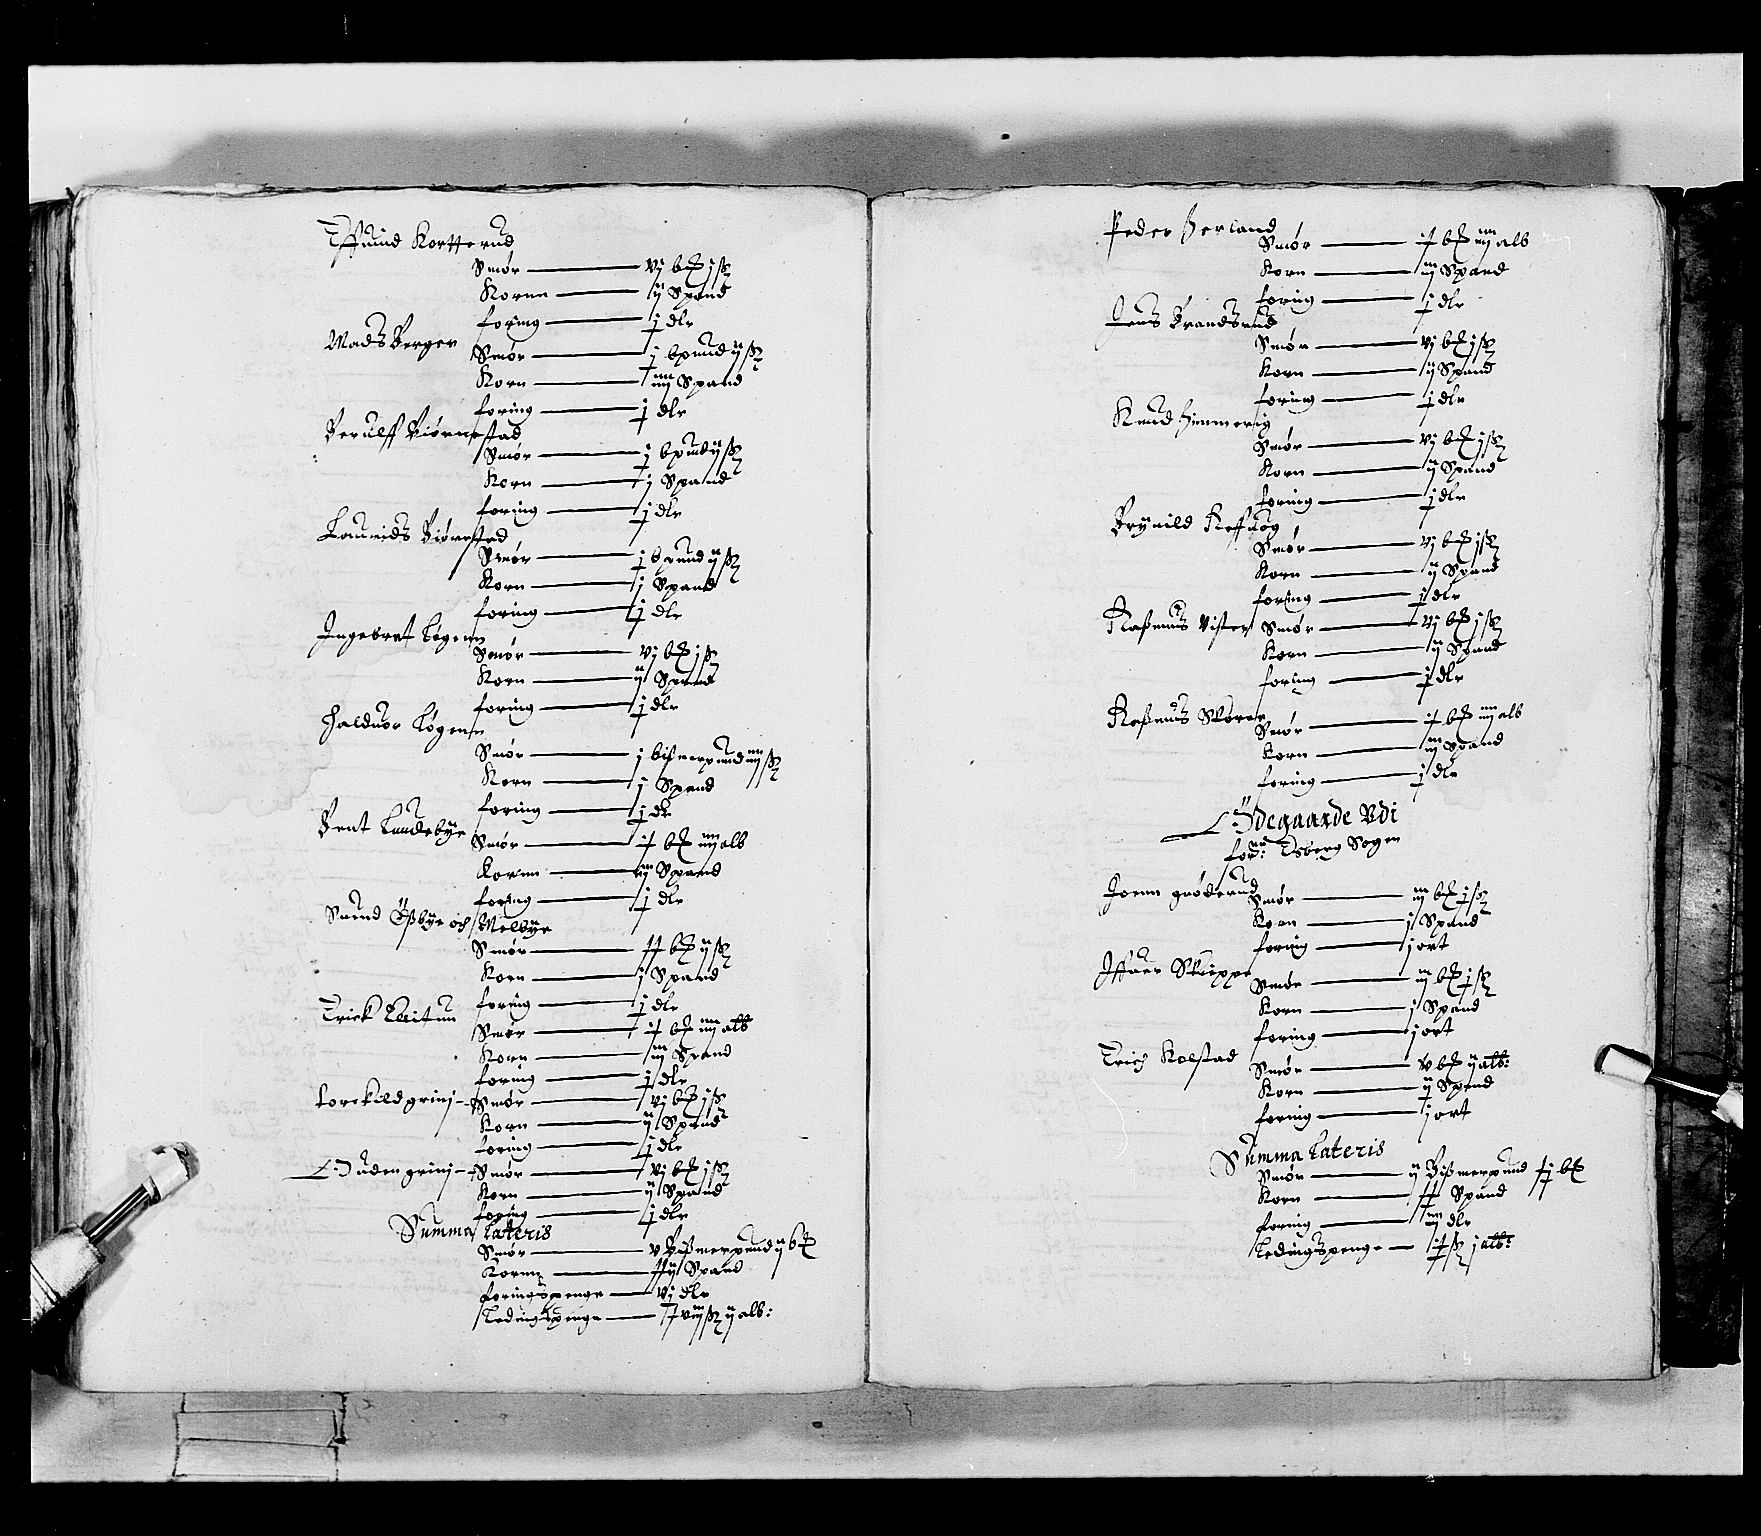 Effuind Kortterud
Smør — vj b℔ j ß
Kornn — ij Spand
foring — j dlr
Mads Berger
Smør — j bpund ij ß
Korn — iiij Spand
foring — j dlr
Berulff Biørnestad
Smør — j bpund ij ß
Korn — j Spand
foring — j dlr
Laurids Biørnstad
Smør — j bpund ij ß
Korn — j Spand
foring — j dlr
Ingebret Løgenn
Smør — vj b℔ j ß
Korn — ij Spand
foring — j dlr
Halduor Løgenn
Smør — j bißmerpund iiij ß
Korn — j Spand
foring — j dlr
Bent Lundebye
Smør — ix b℔ iiij alb
Kornn — iij Spand
foring — j dlr
Suend Eßbye och Melbye
Smør — x b℔ ij ß
Korn — j Spand
foring — j dlr
Erick
Smør — ix b℔ iiij alb
Korn — iij Spand
foring — j dlr
Torckild grinj — Smør — vj b℔ j ß
Korn — ij Spand
foring — j dlr
Auden grinj — Smør — vj b℔ j ß
Korn — ij Spand
foring — j dlr
Summa Lateris
Smør — v Bißmerpund ij b℔
Kornn — Spand
foringspenge — vj dlr
Ledingspenge — ß ij alb:
Peder Herland
Smør — ix b℔ iiij alb
Korn — iij Spand
foring — j dlr
Jens Brandsrud
Smør — vj b℔ j ß
Korn — ij Spand
foring — j dlr
Knud Himmerig
Smør — vj b℔ j ß
Korn — ij Spand
foring — j dlr
Brynild Reffhog
Smør — vj b℔ j ß
Korn — ij Spand
foring — j dlr
Raßmus Vister Smør — vj b℔ j ß
Korn — ij Spand
foring — j dlr
Raßmus Skorer
Smør — ix b℔ iiij alb
Korn — iij Spand
foring — j dlr
Ödegaarde Vdi
forne: Edsberg Sogen
Joenn grøderud
Smør — iij b℔ j ß
Korn — j Spand
foring — j ort
Iffuer Skippe
Smør — iij b℔ j ß
Korn — j Spand
foring — j ort
Erich Kolstad
Smør — v b℔ ij alb:
Korn — ij Spand
foring — j ort
Summa Lateris
Smør — ij Bißmerpund xj b℔
Korn — Spand
foring — iiij dlr
Ledingspenge — ix ß j alb: